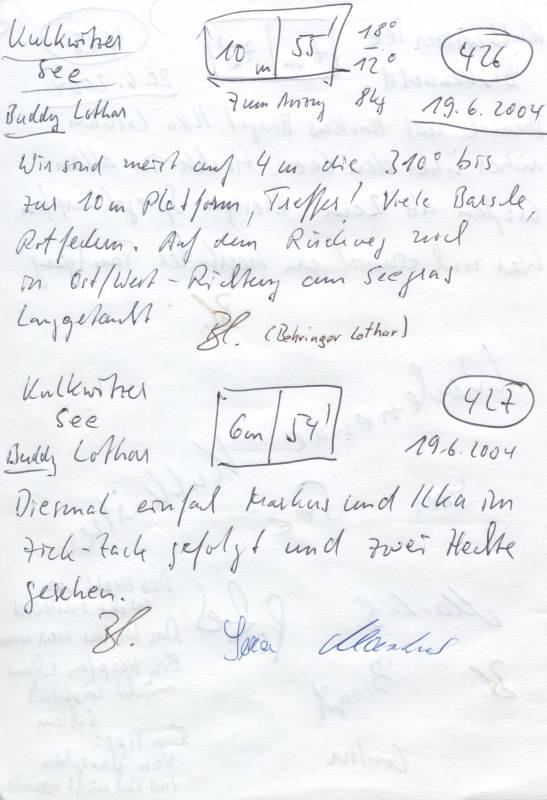 Kulkwitzer
See
10 m 55'
18°
12°
8kg
426
Buddy Lothar
Zum Anzug
19.6.2004
Wir sind meist auf 4 m die 310° bis
zur 10m Platform, Treffer! Viele Barsche,
Rotfedern. Auf dem Rückweg noch
in Ost/West-Richtung am Seegras
langgetaucht
Bl. (Behringer Lothar)
Kulkwitzer
See
6m 54'
427
Buddy Lothar
19.6.2004
Diesmal einfach Markus und Ilka im
Zick-Zack gefolgt und zwei Hechte
gesehen.
Bl. Markus